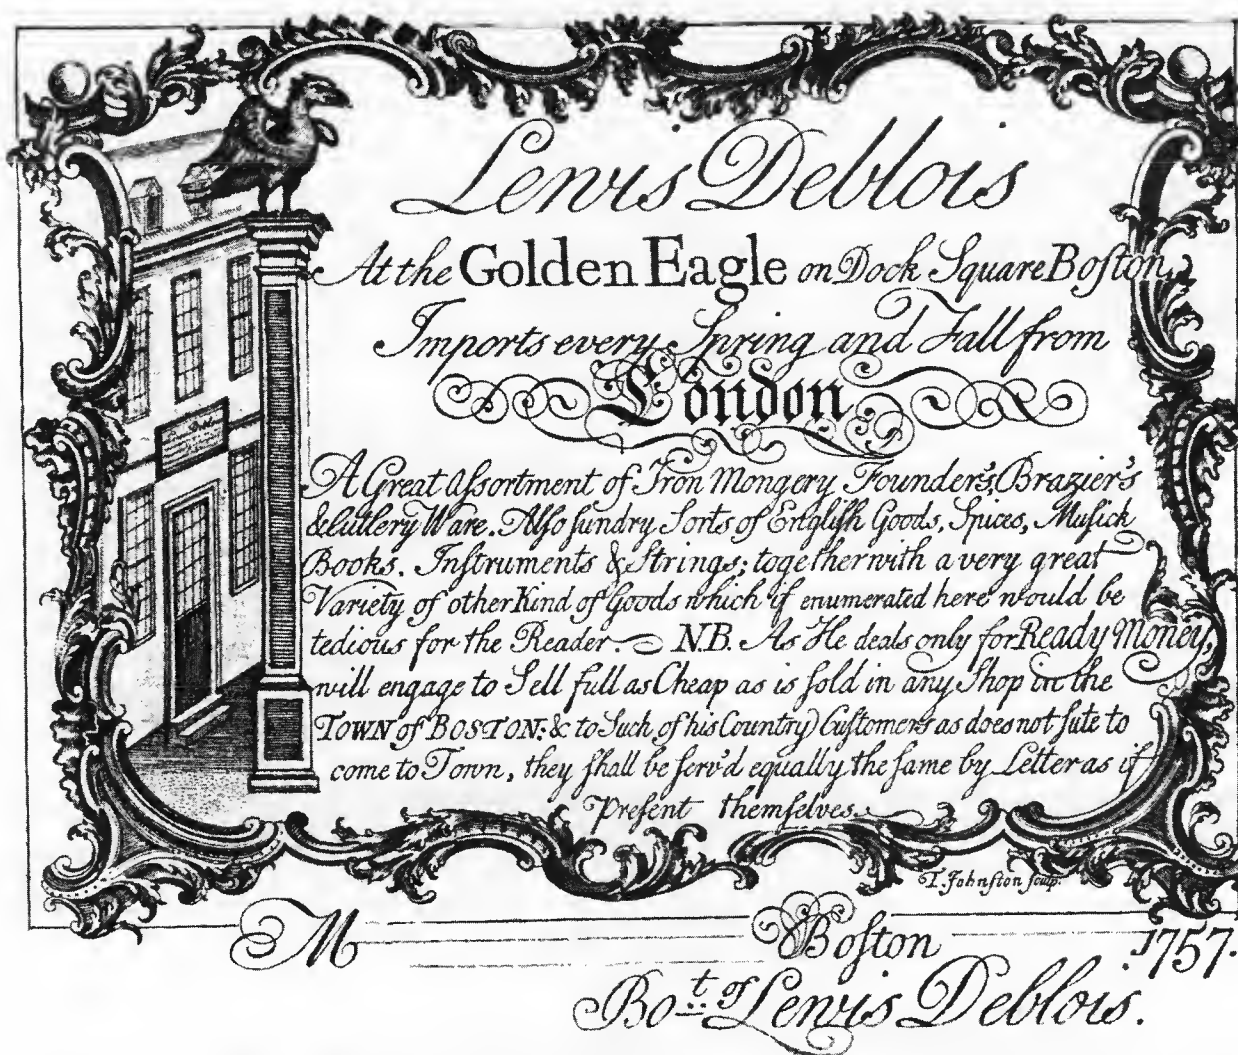 Lewis Deblois
At the Golden Eagle on Dock Square Boſton,
Imports every Spring and Fall from
London
A Great Aſsortment of Iron Mongery Founder's, Brazier's
& Cutlery Ware. Alſo ſundry Sorts of Engliſh Goods, Spices, Muſick
Books, Inſtruments & Strings; together with a very great
Variety of other Kind of Goods which if enumerated here would be
tedious for the Reader. N.B. As He deals only for Ready Money,
will engage to Sell full as Cheap as is ſold in any Shop in the
TOWN of BOSTON: & to Such of his Country Cuſtomers as does not ſute to
come to Town, they ſhall be ſerv'd equally the ſame by Letter as if
Preſent themſelves.
T. Johnſton ſculp.
M Boſton 1757.
Bo.t of Lewis Deblois.